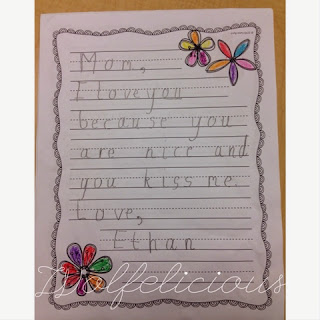 Mom,
I love you
because you
are nice and
you kiss me.
Love,
Ethan
Wolfelicious